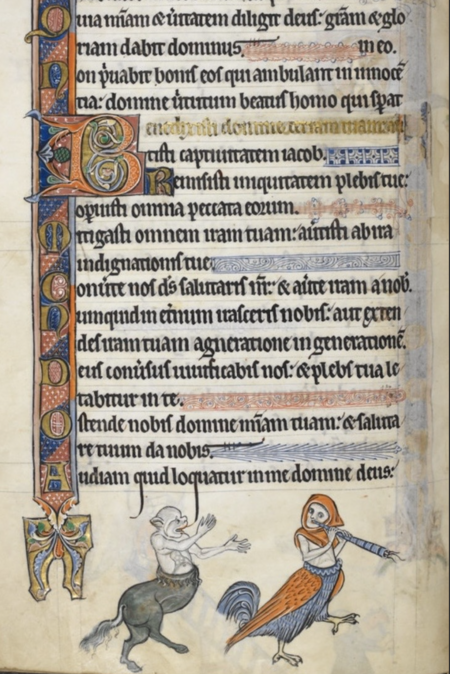 Quia mīam & ūitatem diligit deus: grām & glo
riam dabit dominus.
in eo.
Non p̄uabit bonis eos qui ambulant in innocē
tia: domine ūtutum beatus homo qui sṗat
Benedixisti domine terram tuam
tisti captiuitatem iacob.
Remisisti iniquitatem plebis tue:
opuisti omnia peccata eorum.
Mitigasti omnem iram tuam: autisti ab ira
indignationis tue.
Conūte nos ds̄ salutaris n̄r: & aūte iram a nob̄.
Numquid in et̄num irasceris nobis: aut exten
des iram tuam a generatione in generationē.
Deus conūsus uiuificabis nos: & plebs tua le
tabitur in te.
Ostende nobis domine mīam tuam: & saluta
re tuum da nobis.
Audiam quid loquatur in me domine deus: